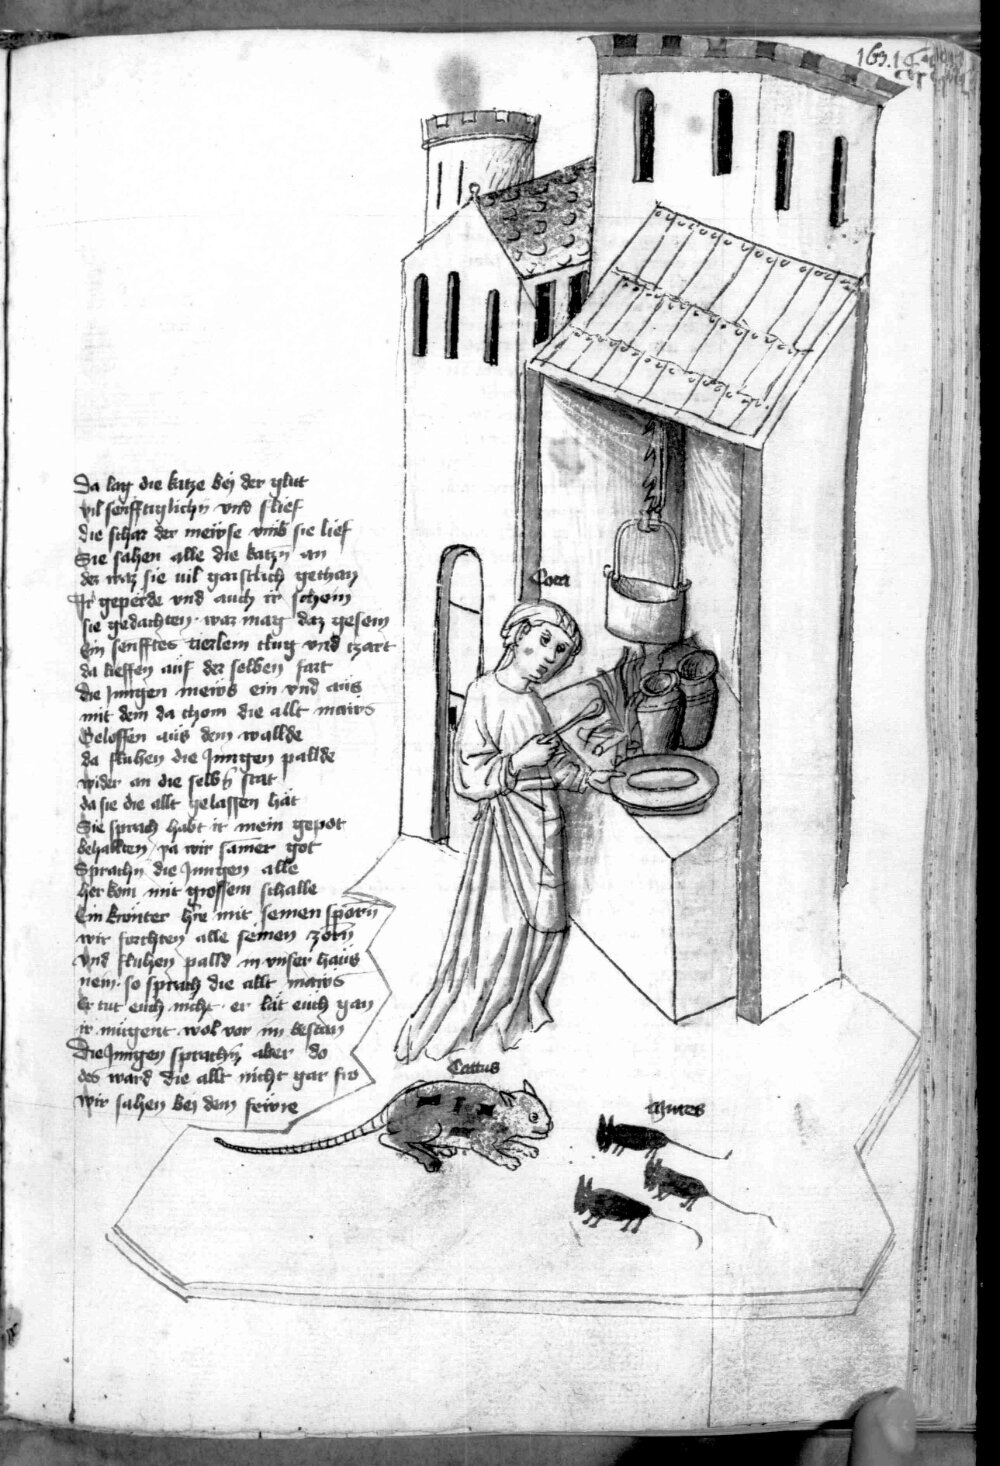 163.
Coca
Da lag die katze bej der glut
vil senfftiglichn vnd slief
die schar der mewse vmb sie lief
Sie sahen alle die katzn an
der waz sie vil gaistlich gethan
Ir geperde vnd auch ir schein
sie gedachten waz mag daz gesein
Ein senfftes tierlein klug vnd tzart
da lieffen auf der selben fart
die Jungen mews ein vnd aus
mit dem da chom die allt maws
Geloffen aus dem wallde
da fluhen die Jungen pallde
wider an die selb stat
da sie die allt gelassen hat
Sie sprach habt ir mein gepot
behallten ya wir samer got
Sprachn die Jungen alle
her kom mit grossem schalle
Ein hre mit seinen sporn
wir forchten alle seinen zorn
vnd fluhen palld in vnser haus
nein so sprach die allt maws
Er tut euch nicht er lat euch gan
ir mugent wol vor im bestan
Die Jungen sprachn aber do
des ward die allt nicht gar fro
wir sahen bej dem fewre
Cattus
Mures